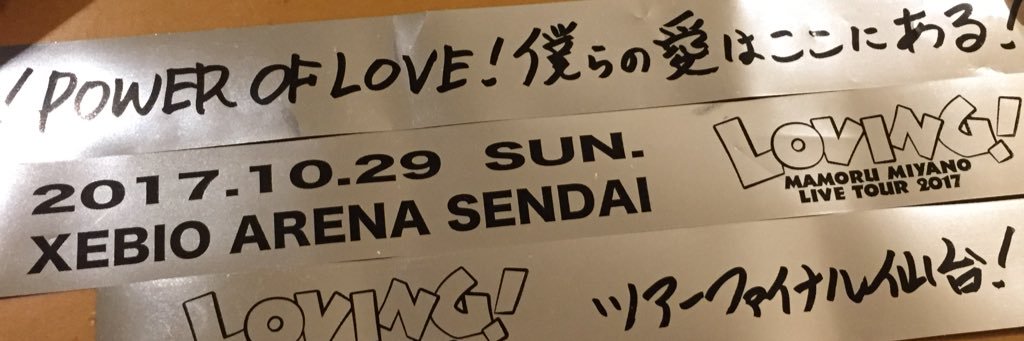 ! POWER OF LOVE! 僕らの愛はここにある!
2017.10.29 SUN.
XEBIO ARENA SENDAI
LOVING!
MAMORU MIYANO
LIVE TOUR 2017
LOVING!
ツアーファイナル仙台!